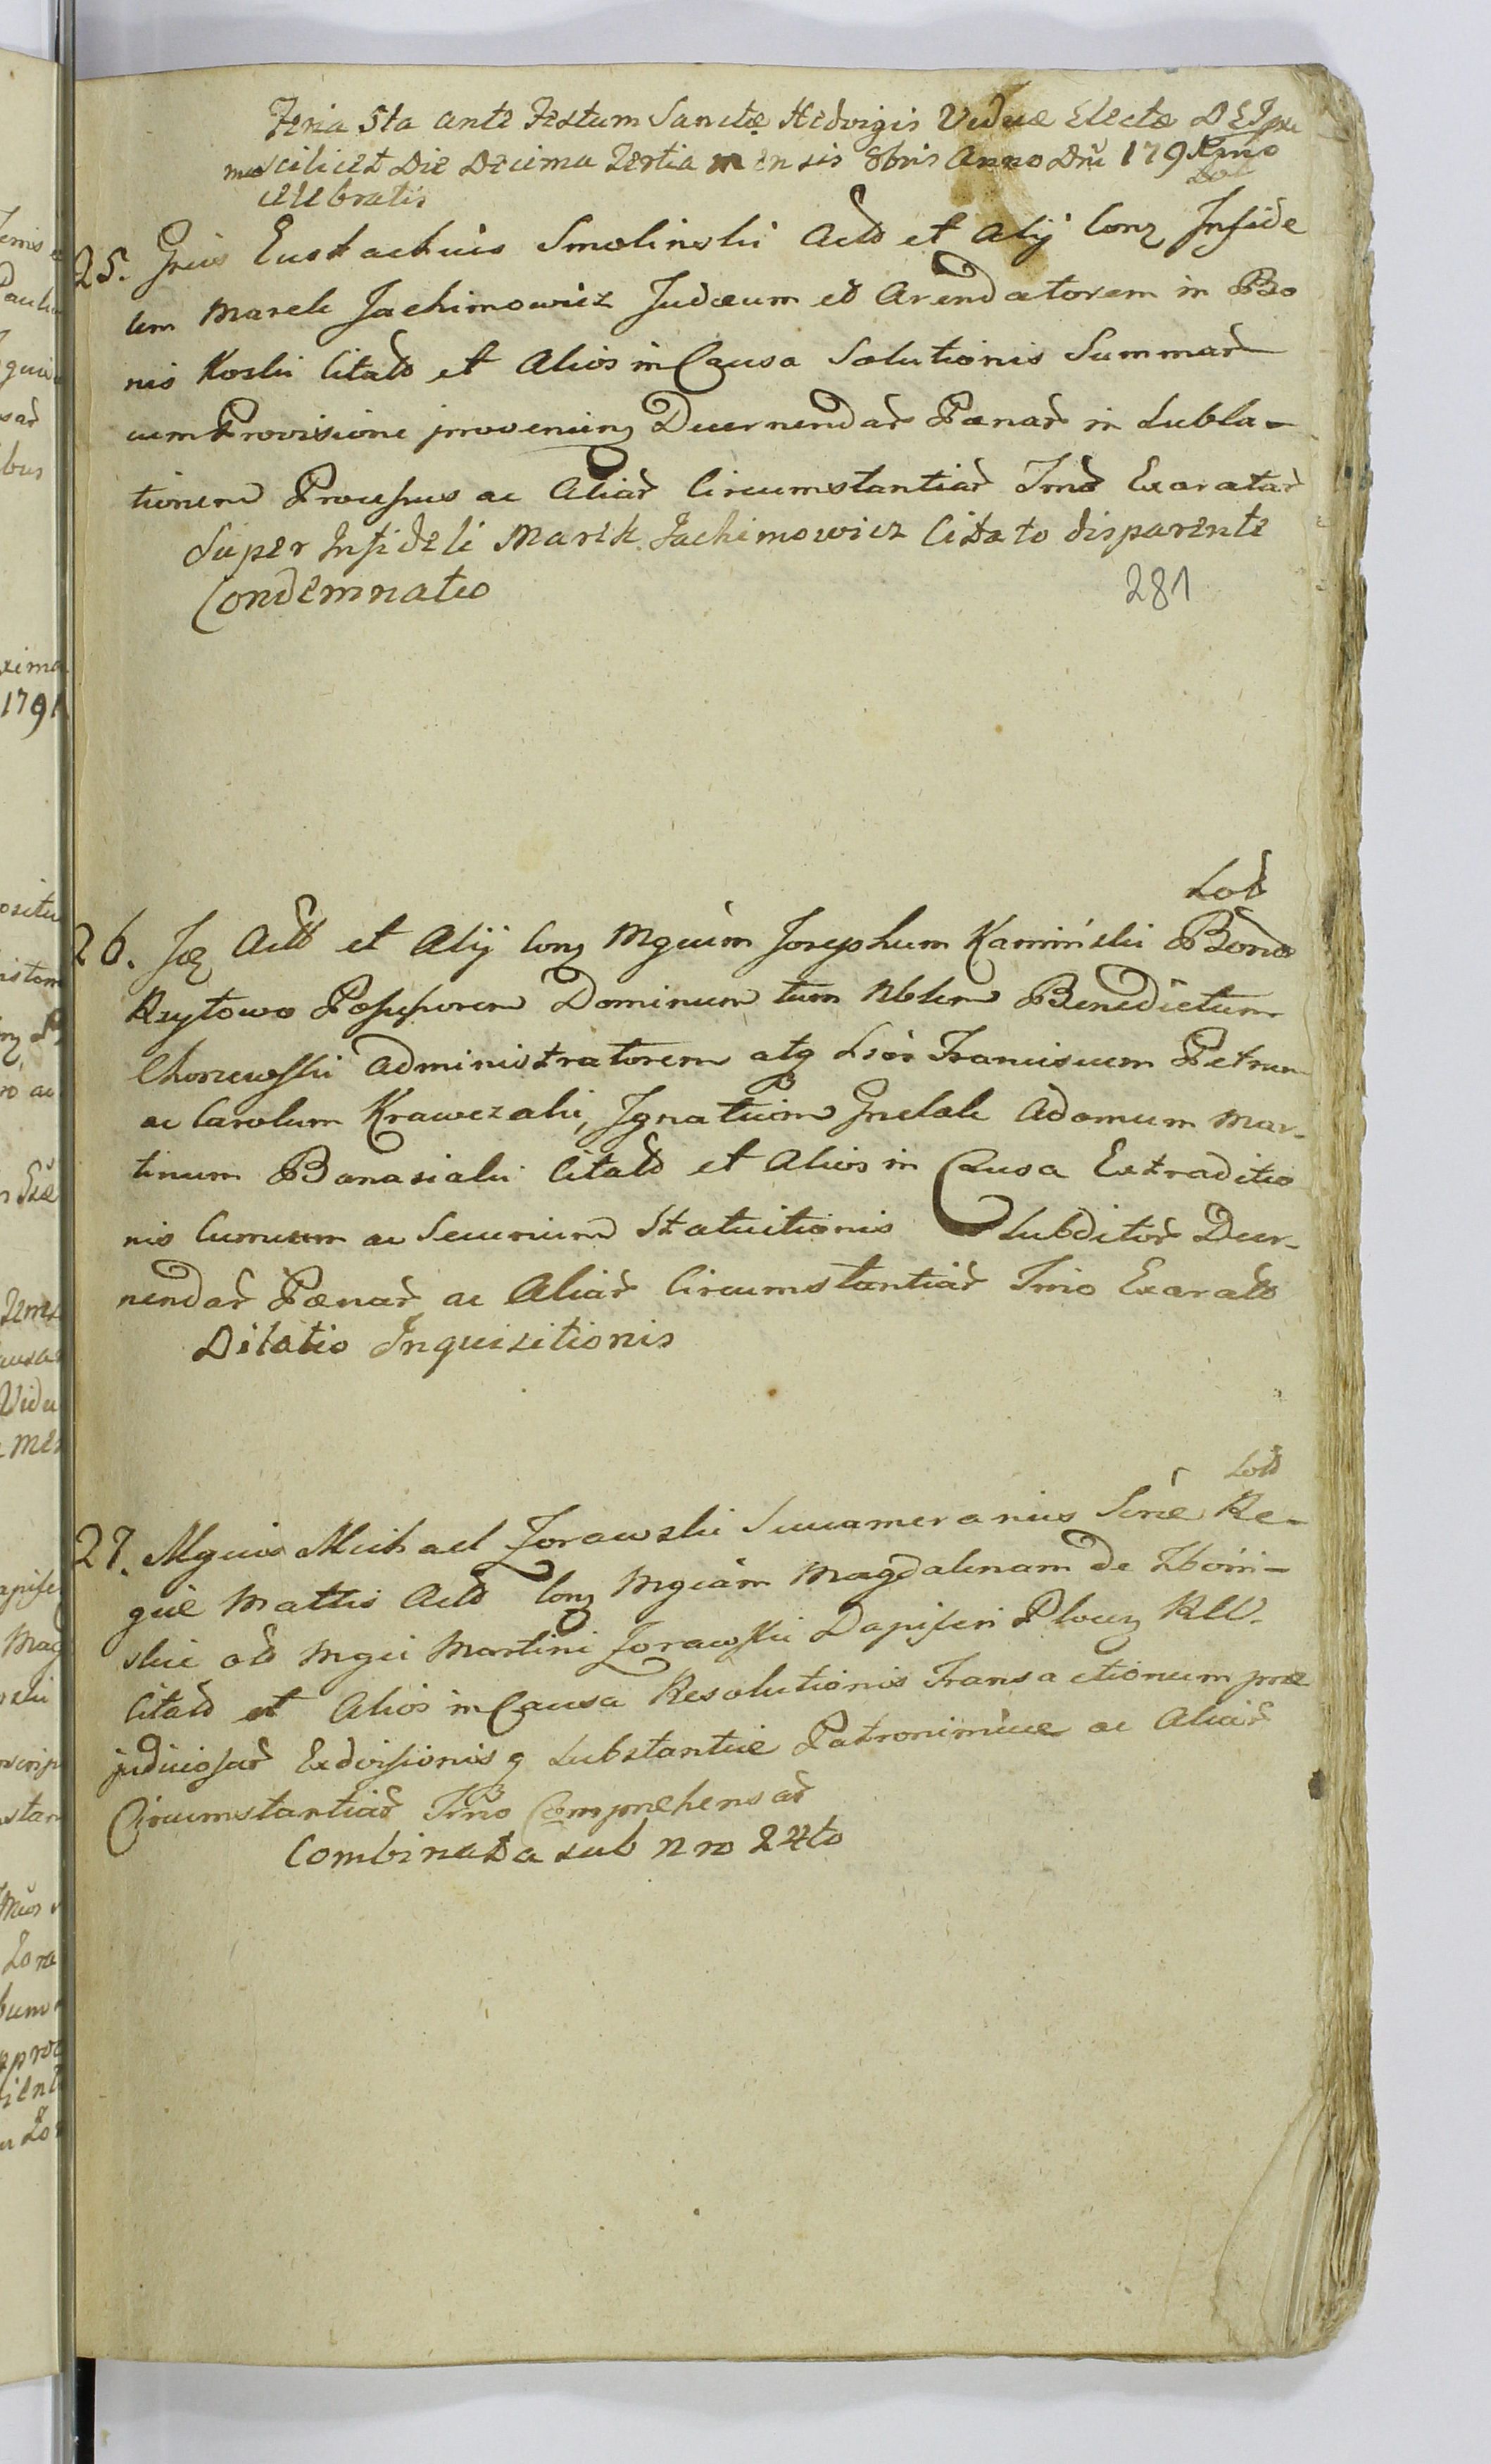 Feria 5ta ante Festum Sanctæ Hedvigis Viduæ Electæ
scilicet Die Decima Tertia mensis 8bris Anno Dni 179 Primo
celebratis
25. Eustachius Smolinski Actd et Alij Conq Infide
lem Marek Jachimowicz Judæum et Arendatorem in Bo
nis Koski Citatd et Alios in Causa Solutionis Summar
cum Provisione provenienq Decernendar Pænar in Subla-
tionem Processus ac Aliar Circumstantiar Trno Exaratar
Super Infideli Marek Jachimowicz Citato disparente
Condemnatio
281
Sod
26. Actd et Alij Conq Mgcum Josephum Kamiński Bonor
Rzytowo Possessorem Dominum tum Nblem Benedictum
Chorzewski Administratorem atq Franciscum Petrum
ac Carolum Krawczaki, Ignatium Adamum Mar-
tinum Banasiaki Citatd et Alios in Causa Extraditio
nis Curruum ac Securium Statuitionis Subditor Decer-
nendar Pænar ac Aliar Circumstantiar Trno Exaratd
Dilatio Inquisitionis
Sod
27. Mgcus Michael Zorawski Succamerarius Scræ Re-
giæ Mattis Actd Conq Mgcam Magdalenam de Zboin-
skie Mgci Martini Zorawski Dapiferi Plocq
Citatd et Alios in Causa Resolutionis Transactionum præ
judiciosar Exdivisionis q Substantiæ Patronimicæ ac Aliar
Circumstantiar Trno Comprehensar
Combinata sub nro 24to
1791